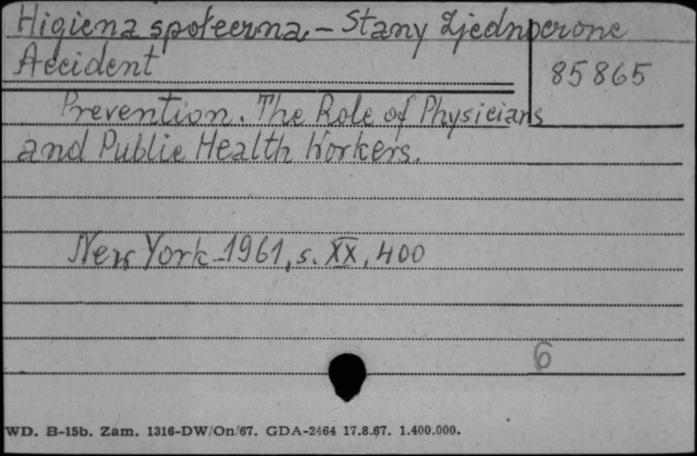 Higiena społeczna - Stany Zjednoczone
Accident
85865
Prevention. The Role of Physicians
and Public Health Workers.
New York 1961, s. XX, 400
6
WD. B-15b. Zam. 1316-DW/On/67. GDA-2464 17.8.67. 1.400.000.